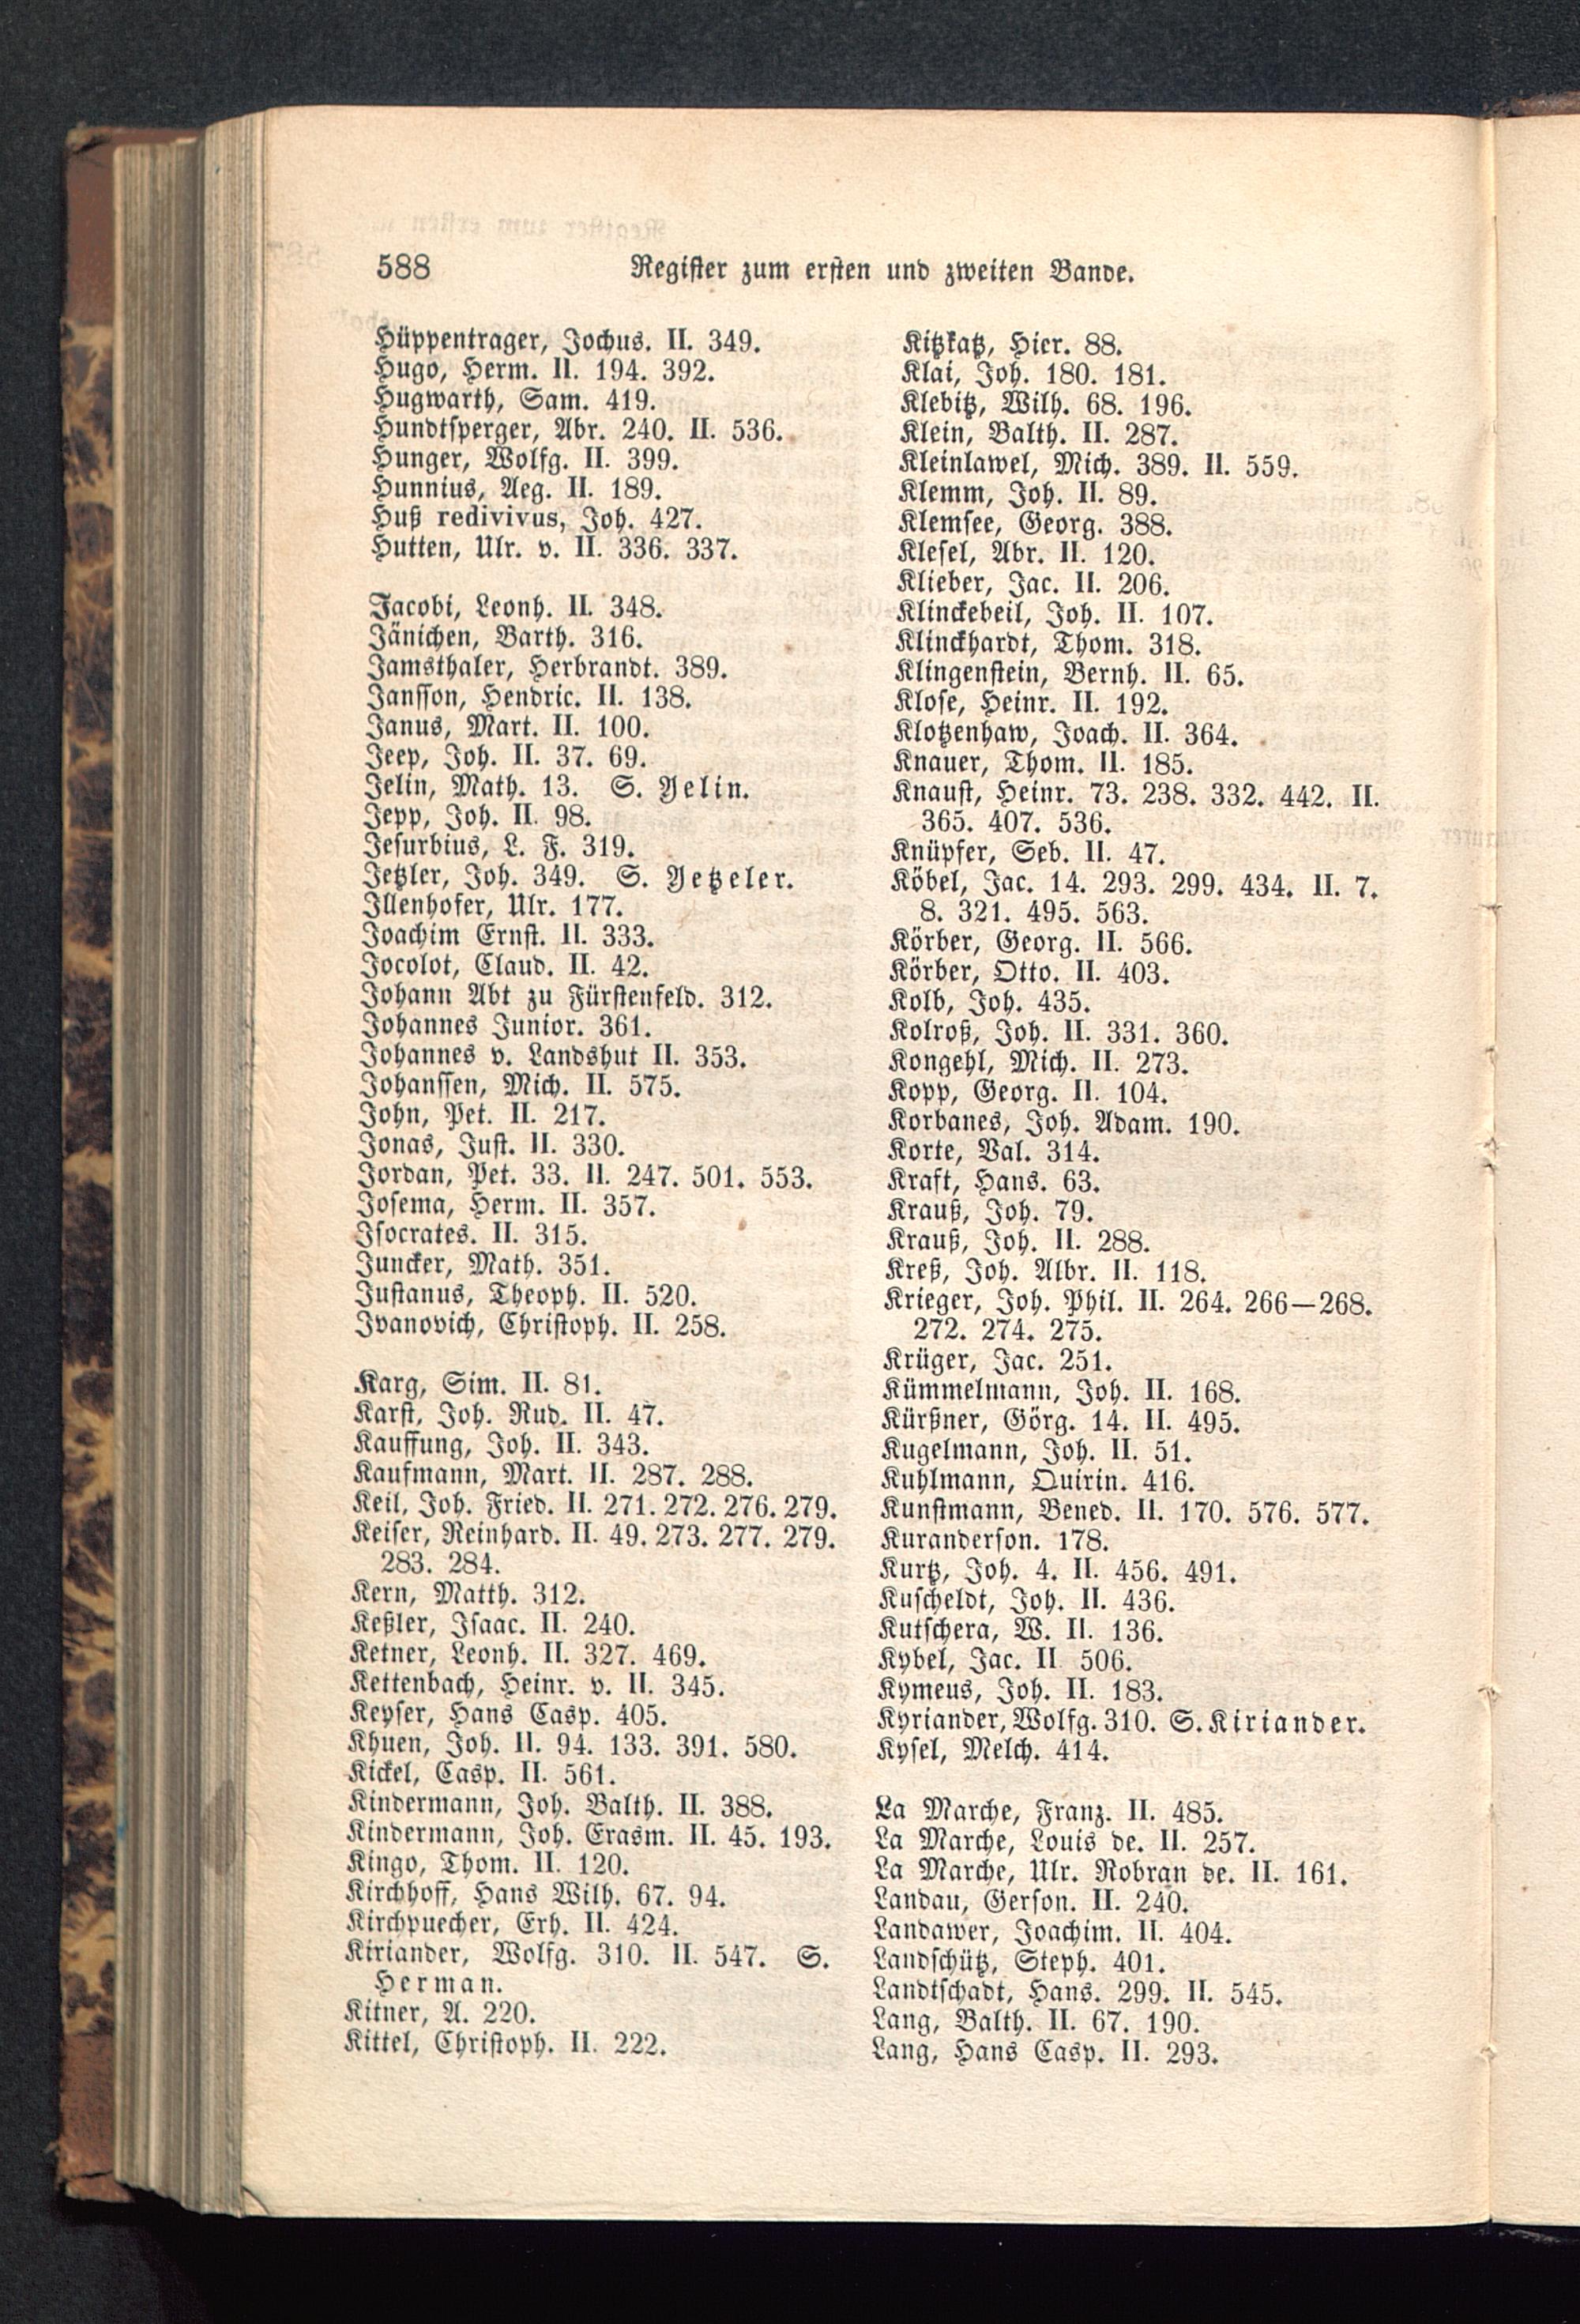 588 Register zum ersten und zweiten Bande.
Hüppentrager, Jochus. II. 349.
Hugo, Herm. II. 194. 392.
Hugwarth, Sam. 419.
Hundtsperger, Abr. 240. II. 536.
Hunger, Wolfg. II. 399.
Hunnius, Aeg. II. 189.
Huß redivivus, Joh. 427.
Hutten, Ulr. v. II. 336. 337.
Jacobi, Leonh. II. 348.
Jänichen, Barth. 316.
Jamsthaler, Herbrandt. 389.
Jansson, Hendric. II. 138.
Janus, Mart. II. 100.
Jeep, Joh. II. 37. 69.
Jelin, Math. 13. S. Yelin.
Jepp, Joh. II. 98.
Jesurbius, L. F. 319.
Jetzler, Joh. 349. S. Yetzeler.
Illenhofer, Ulr. 177.
Joachim Ernst. II. 333.
Jocolot, Claud. II. 42.
Johann Abt zu Fürstenfeld. 312.
Johannes Junior. 361.
Johannes v. Landshut II. 353.
Johanssen, Mich. II. 575.
John, Pet. II. 217.
Jonas, Just. II. 330.
Jordan, Pet. 33. II. 247. 501. 553.
Josema, Herm. II. 357.
Isocrates. II. 315.
Juncker, Math. 351.
Justanus, Theoph. II. 520.
Ivanovich, Christoph. II. 258.
Karg, Sim. II. 81.
Karst, Joh. Rud. II. 47.
Kauffung, Joh. II. 343.
Kaufmann, Mart. II. 287. 288.
Keil, Joh. Fried. II. 271. 272. 276. 279.
Keiser, Reinhard. II. 49. 273. 277. 279.
283. 284.
Kern, Matth. 312.
Keßler, Isaac. II. 240.
Ketner, Leonh. II. 327. 469.
Kettenbach, Heinr. v. II. 345.
Keyser, Hans Casp. 405.
Khuen, Joh. II. 94. 133. 391. 580.
Kickel, Casp. II. 561.
Kindermann, Joh. Balth. II. 388.
Kindermann, Joh. Erasm. II. 45. 193.
Kingo, Thom. II. 120.
Kirchhoff, Hans Wilh. 67. 94.
Kirchpuecher, Erh. II. 424.
Kiriander, Wolfg. 310. II. 547. S.
Herman.
Kitner, A. 220.
Kittel, Christoph. II. 222.
Kitzkatz, Hier. 88.
Klai, Joh. 180. 181.
Klebitz, Wilh. 68. 196.
Klein, Balth. II. 287.
Kleinlawel, Mich. 389. II. 559.
Klemm, Joh. II. 89.
Klemsee, Georg. 388.
Klesel, Abr. II. 120.
Klieber, Jac. II. 206.
Klinckebeil, Joh. II. 107.
Klinckhardt, Thom. 318.
Klingenstein, Bernh. II. 65.
Klose, Heinr. II. 192.
Klotzenhaw, Joach. II. 364.
Knauer, Thom. II. 185.
Knaust, Heinr. 73. 238. 332. 442. II.
365. 407. 536.
Knüpfer, Seb. II. 47.
Köbel, Jac. 14. 293. 299. 434. II. 7.
8. 321. 495. 563.
Körber, Georg. II. 566.
Körber, Otto. II. 403.
Kolb, Joh. 435.
Kolroß, Joh. II. 331. 360.
Kongehl, Mich. II. 273.
Kopp, Georg. II. 104.
Korbanes, Joh. Adam. 190.
Korte, Val. 314.
Kraft, Hans. 63.
Krauß, Joh. 79.
Krauß, Joh. II. 288.
Kreß, Joh. Albr. II. 118.
Krieger, Joh. Phil. II. 264. 266—268.
272. 274. 275.
Krüger, Jac. 251.
Kümmelmann, Joh. II. 168.
Kürßner, Görg. 14. II. 495.
Kugelmann, Joh. II. 51.
Kuhlmann, Quirin. 416.
Kunstmann, Bened. II. 170. 576. 577.
Kuranderson. 178.
Kurtz, Joh. 4. II. 456. 491.
Kuscheldt, Joh. II. 436.
Kutschera, W. II. 136.
Kybel, Jac. II 506.
Kymeus, Joh. II. 183.
Kyriander, Wolfg. 310. S. Kiriander.
Kysel, Melch. 414.
La Marche, Franz. II. 485.
La Marche, Louis de. II. 257.
La Marche, Ulr. Robran de. II. 161.
Landau, Gerson. II. 240.
Landawer, Joachim. II. 404.
Landschütz, Steph. 401.
Landtschadt, Hans. 299. II. 545.
Lang, Balth. II. 67. 190.
Lang, Hans Casp. II. 293.